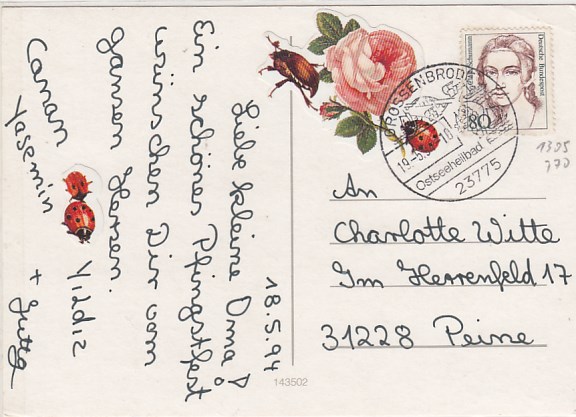 18.5.94
Liebe kleine Oma!
Ein schönes Pfingstfest
wünschen Dir vom
ganzen Herzen.
Canan
Yasemin
Yildiz
+ Jutta
Deutsche Bundespost
80
GROSSENBRODE
19.-5.94-10
Ostseeheilbad
23775
1305
770
An
Charlotte Witte
Im Herrenfeld 17
31228 Peine
143502